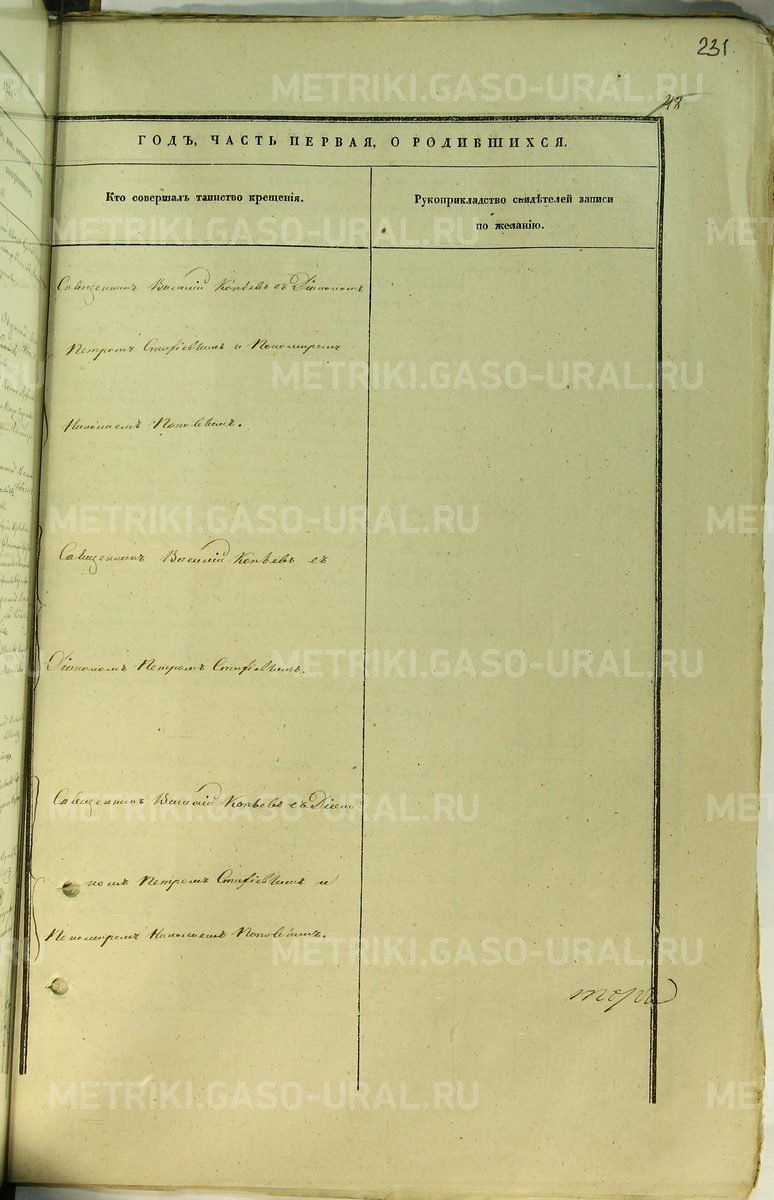 231
48
ГОДЪ, ЧАСТЬ ПЕРВАЯ, О РОДИВШИХСЯ.
Кто совершалъ таинство крещенія.
Рукоприкладство свидѣтелей записи
по желанію.
Священникъ Василій Копѣевъ съ Діакономъ
Петромъ Стафіевымъ и Пономаремъ
Николаемъ Поповымъ.
Священникъ Василій Копѣевъ съ
Діакономъ Петромъ Стафіевымъ.
Священникъ Василій Копѣевъ съ Діако
номъ Петромъ Стафіевымъ и
Пономаремъ Николаемъ Поповымъ.
METRIKI.GASO-URAL.RU